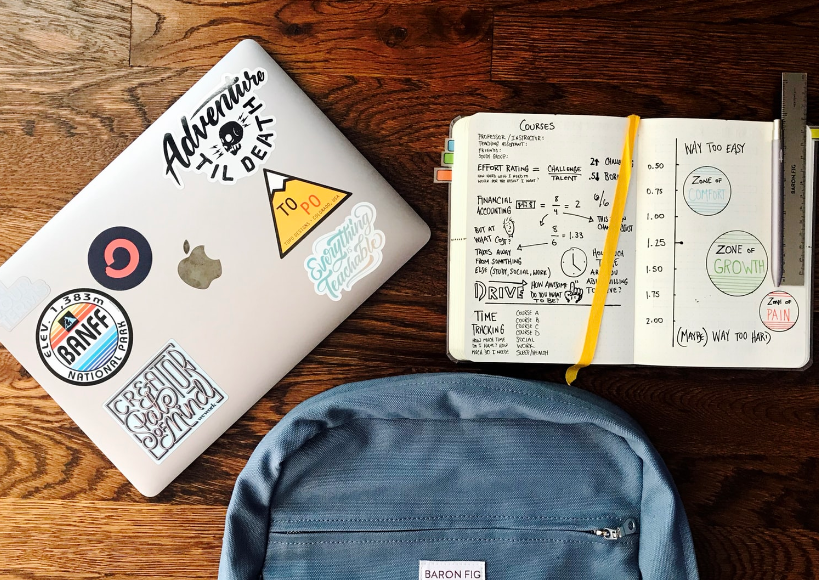 Adventure
'TIL DEATH
TO
PO
TOPO DESIGNS / COLORADO, USA
Everything
is
Teachable
ELEV. 1,383m
BANFF
NATIONAL PARK
CREATOR
State
of Mind
COURSES
PROFESSOR / INSTRUCTOR:
TEACHING ASSISTANT:
FRIENDS:
STUDY GROUP:
EFFORT RATING = CHALLENGE
TALENT
FINANCIAL
ACCOUNTING
= 8
4
= 2
6/6
BUT AT
WHAT COST?
8
6
= 1.33
TAKES AWAY
FROM SOMETHING
ELSE (STUDY, SOCIAL, WORK)
DRIVE
HOW AWESOME
DO YOU WANT
TO BE?
TIME
TRACKING
HOW MUCH TIME
DO I HAVE? HOW
MUCH DO I NEED?
COURSE A
COURSE B
COURSE C
COURSE D
SOCIAL
WORK
WAY TOO EASY
0.50
0.75
1.00
1.25
1.50
1.75
2.00
ZONE OF
COMFORT
ZONE OF
GROWTH
ZONE OF
PAIN
(MAYBE) WAY TOO HARD
BARON FIG
BARON FIG